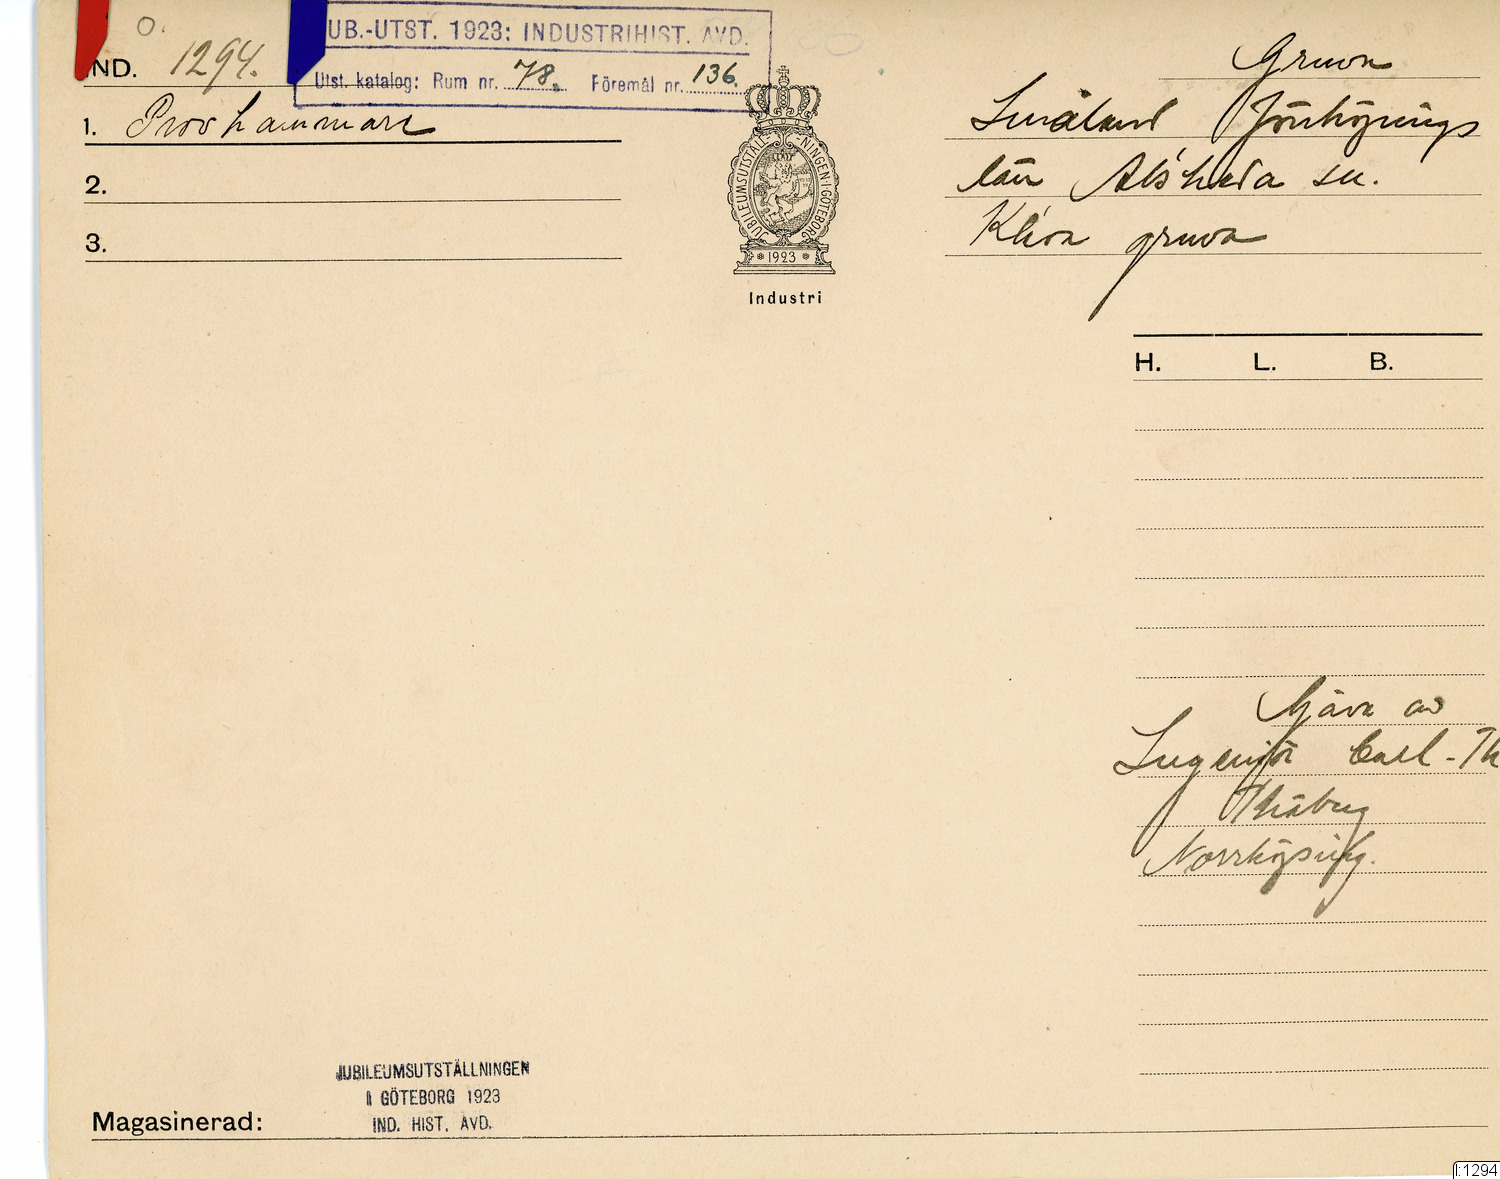 O.
IND. 1294.
UB.-UTST. 1923: INDUSTRIHIST. AVD.
Utst. katalog: Rum nr. 78. Föremål nr. 136.
1. Provhammare
2.
3.
JUBILEUMSUTSTÄLLNINGEN·I·GÖTEBORG
1923
Industri
Gruva
Småland Jönköpings
län Alsheda sn.
Kleva gruva
H. L. B.
Gåva av
Ingenjör Carl-Th
Norrköping.
JUBILEUMSUTSTÄLLNINGEN
I GÖTEBORG 1923
IND. HIST. AVD.
Magasinerad:
I:1294